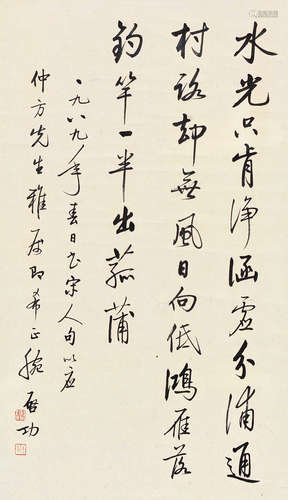 水光只肯浄涵虚分浦通
村路却無風日向低鴻雁落
釣竿一半出菰蒲
一九八九年春日书宋人句以应
仲方先生雅属即希正腕 启功